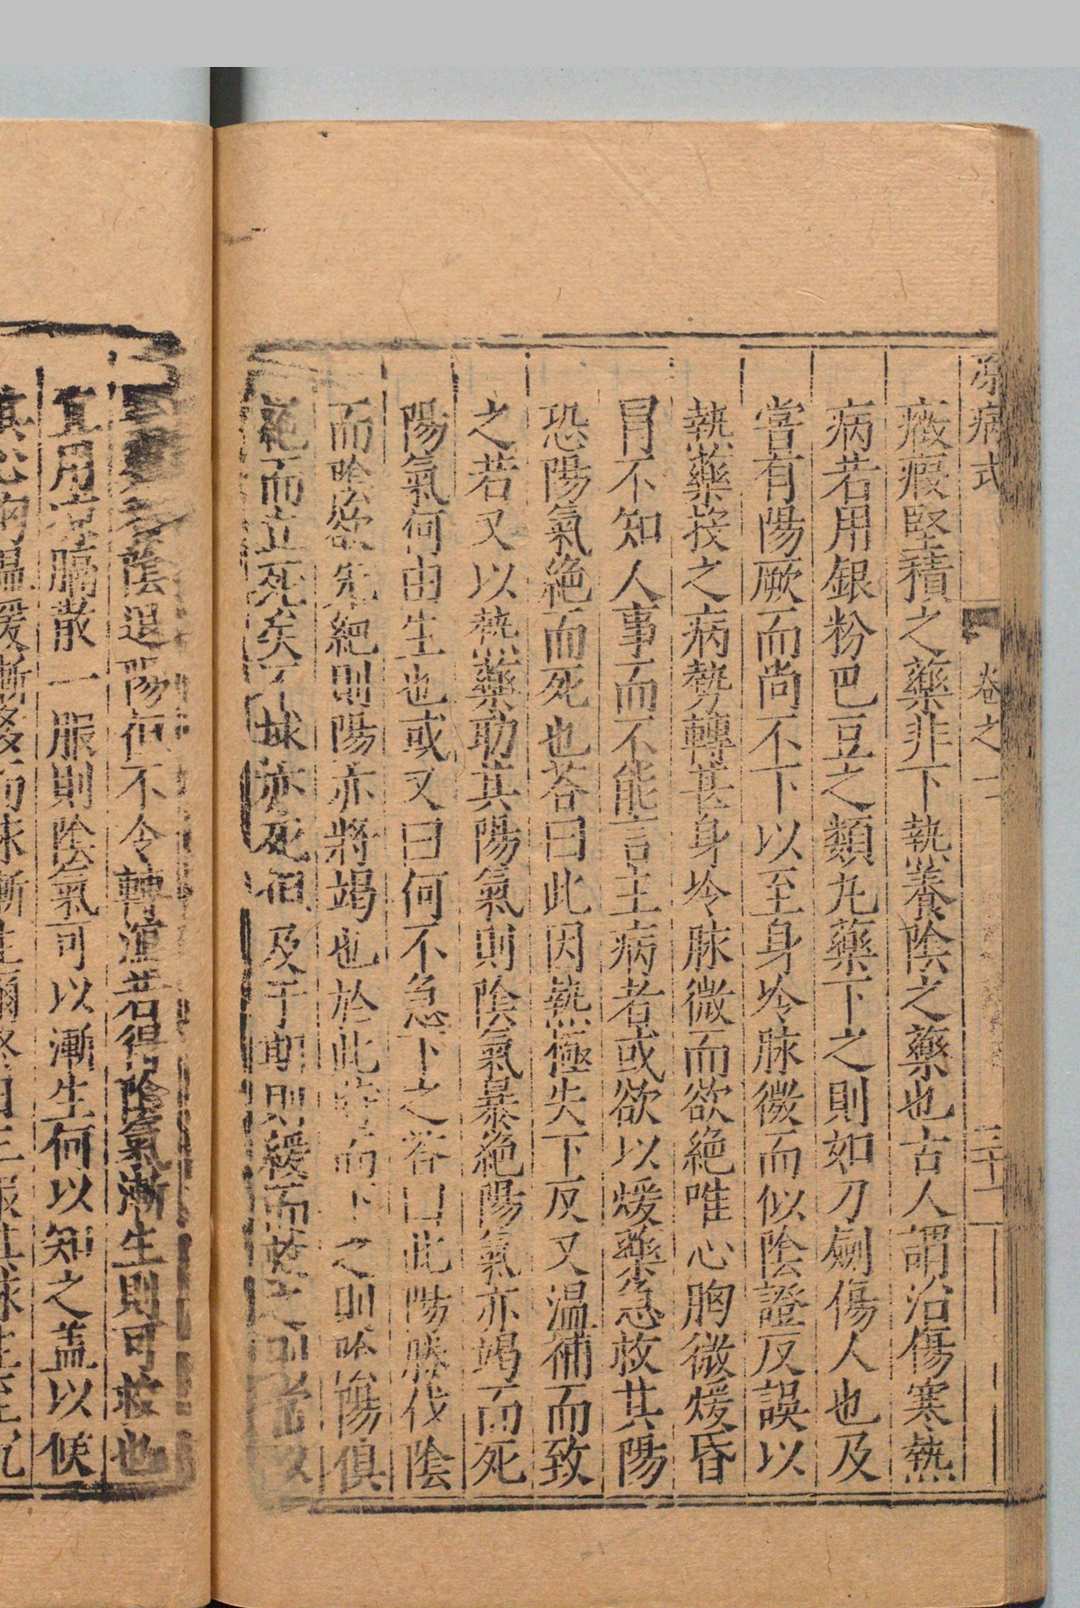 原病式 卷之一 三十一
癥瘕堅積之藥非下熱養陰之藥也古人謂治傷寒熱
病若用銀粉巴豆之類丸藥下之則如刀劍傷人也及
嘗有陽厥而尚不下以至身冷脉微而似陰證反誤以
熱藥投之病勢轉甚身冷脉微而欲絕唯心胸微煖昏
冒不知人事而不能言主病者或欲以煖藥急救其陽
恐陽氣絕而死也荅曰此因熱極失下反又温補而致
之若又以熱藥助其陽氣則陰氣暴絕陽氣亦竭而死
陽氣何由生也或又曰何不急下之荅曰此陽勝伐陰
而陰欲先絕則陽亦將竭也於此時而下之則陰陽俱
絕而立死矣不救亦死但及于期則緩而
陰退陽但不令轉若得陰氣漸生則可救也
宜用凉膈散一服則陰氣可以漸生何以知之盖以候
其心胸温煖漸多而脉漸生